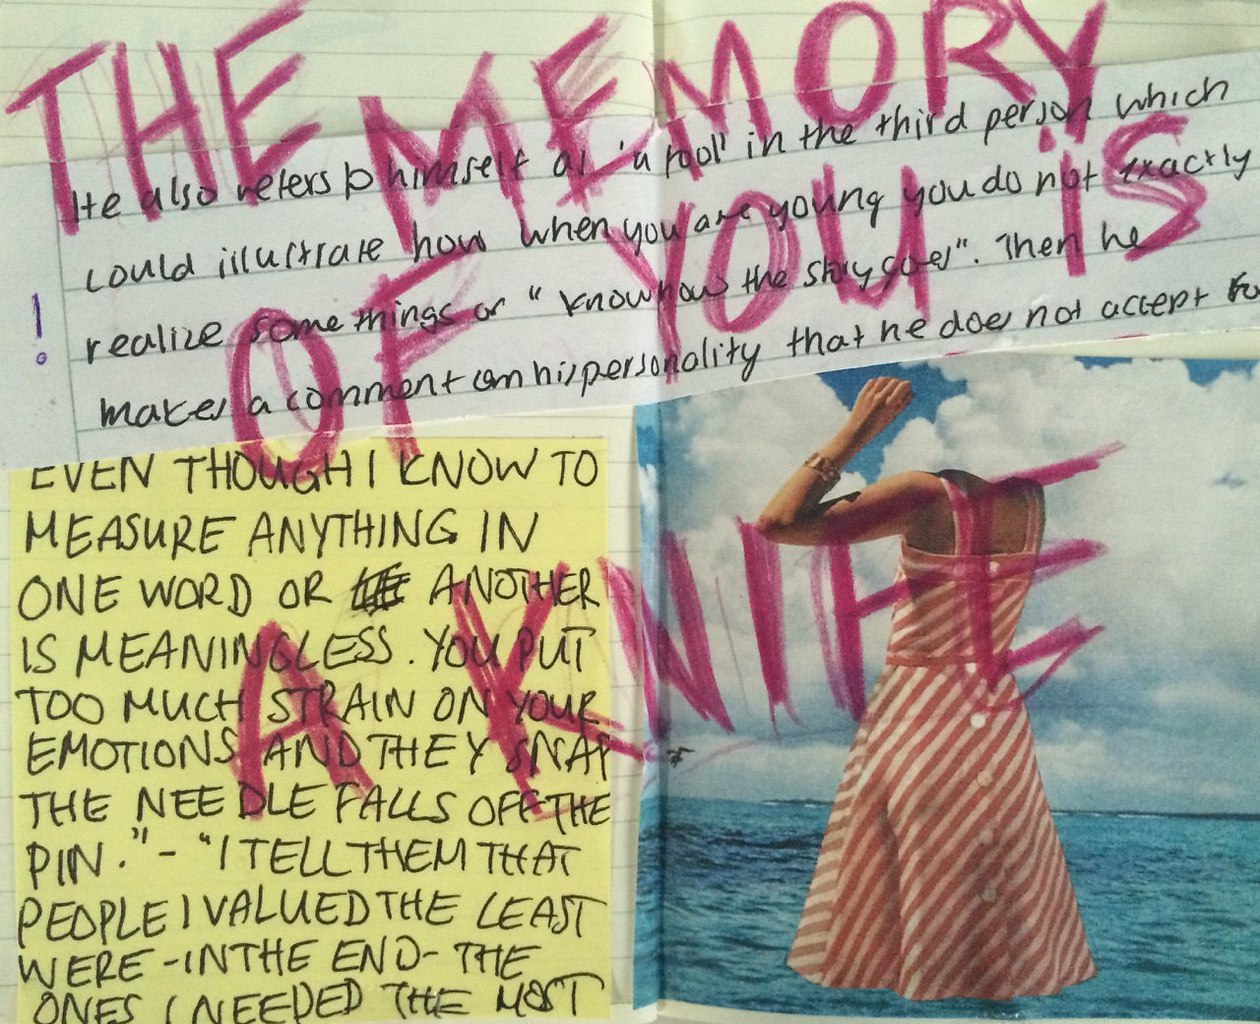 THE MEMORY
OF YOU IS
A KNIFE
He also refers to himself as 'a fool' in the third person which
could illustrate how when you are young you do not exactly
realize some things or "know how the story goes". Then he
makes a comment on his personality that he does not accept to
!
EVEN THOUGH I KNOW TO
MEASURE ANYTHING IN
ONE WORD OR ANOTHER
IS MEANINGLESS. YOU PUT
TOO MUCH STRAIN ON YOUR
EMOTIONS AND THEY SNAP
THE NEEDLE FALLS OFF THE
PIN." - "I TELL THEM THAT
PEOPLE I VALUED THE LEAST
WERE - IN THE END - THE
ONES I NEEDED THE MOST